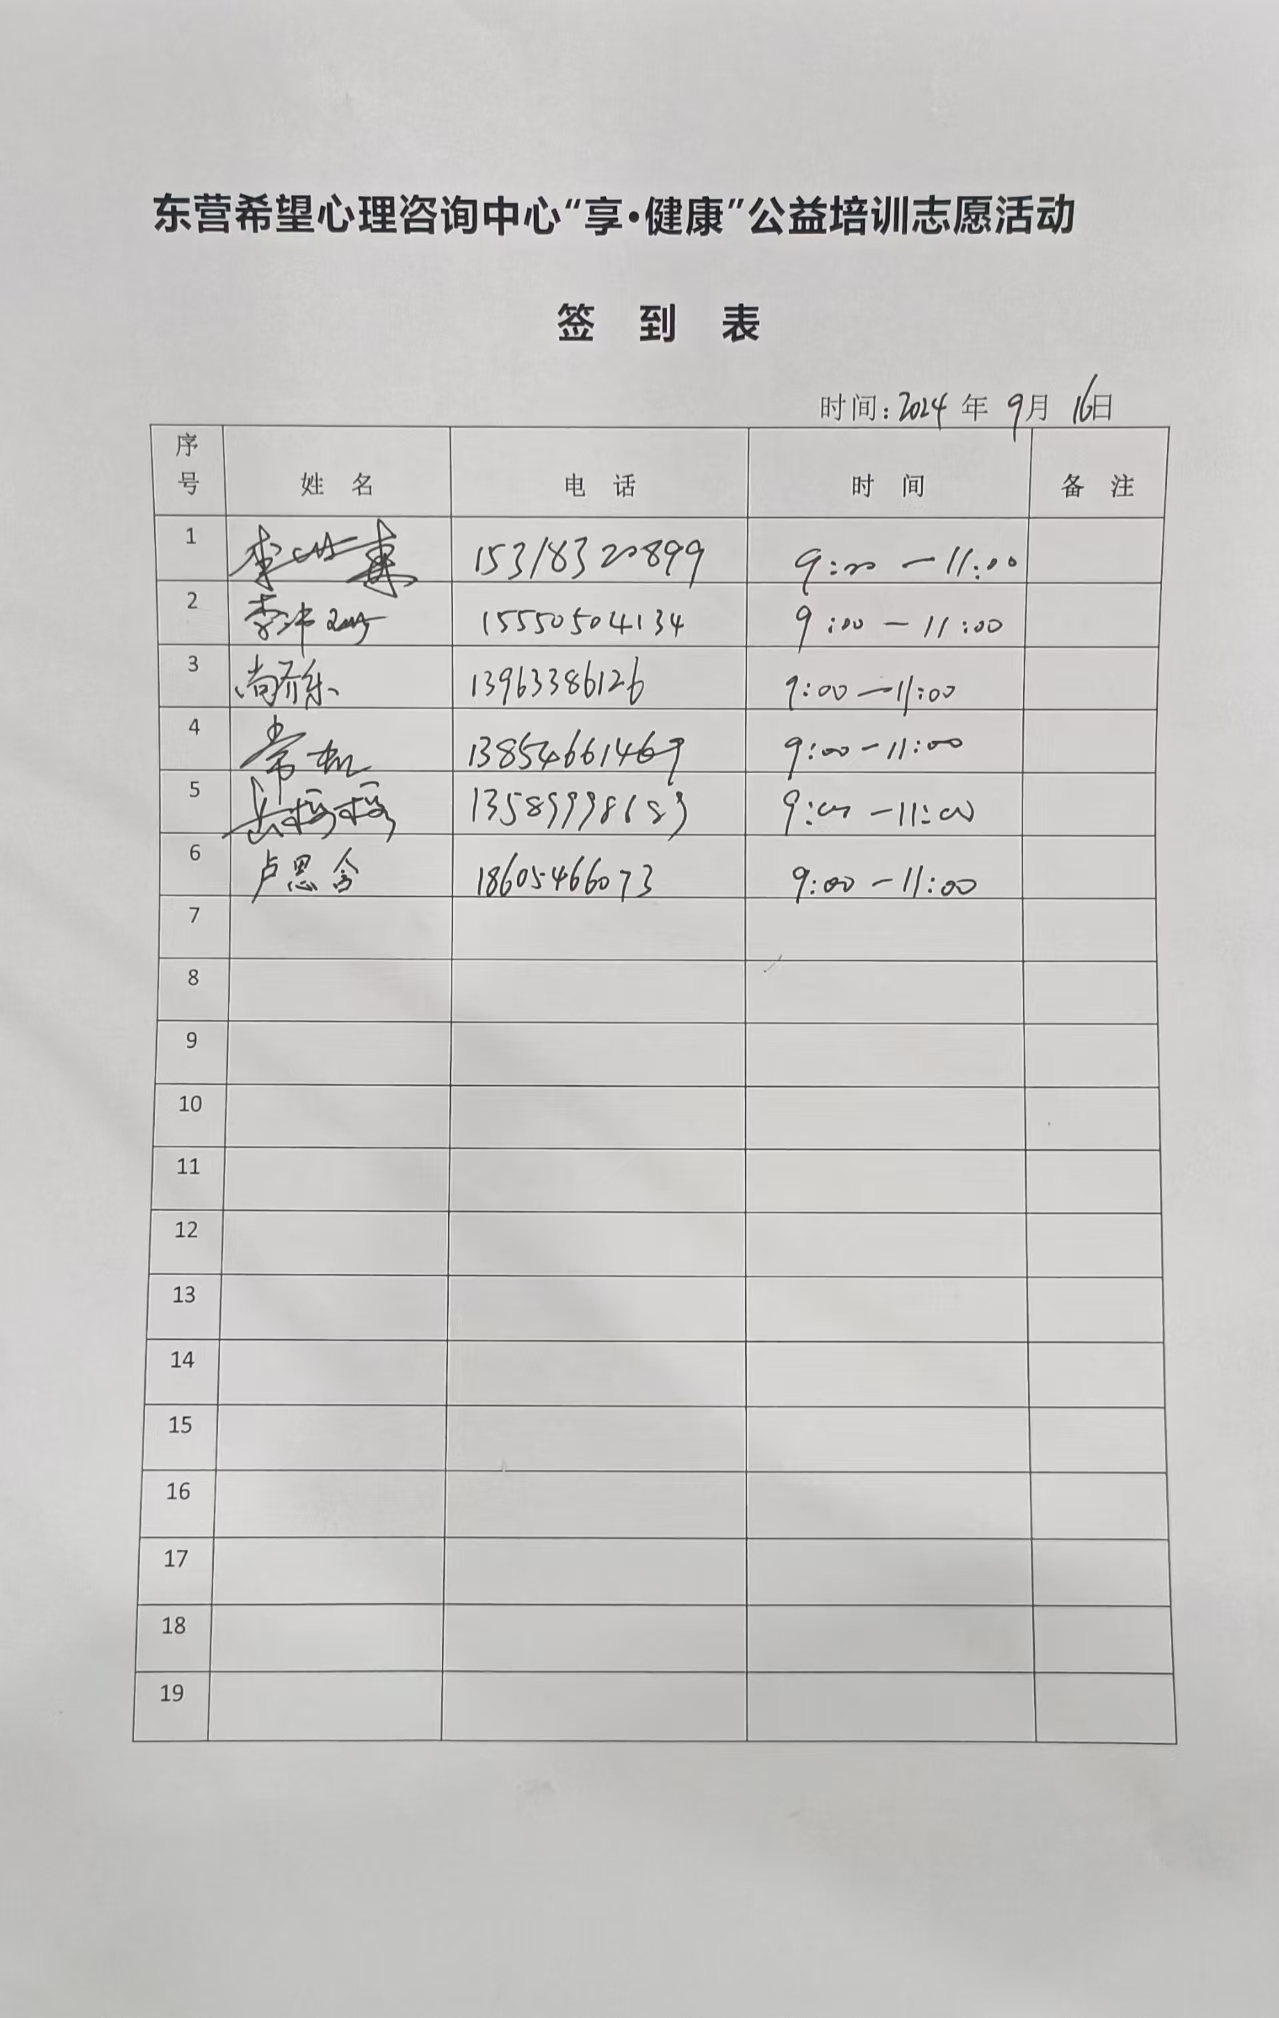 东营希望心理咨询中心“享•健康”公益培训志愿活动
签 到 表
时间:2024 年 9月 16日
序号 姓 名 电 话 时 间 备 注
1 李 15318320899 9:00 — 11:00
2 李 15550504134 9:00 — 11:00
3 尚乔乐 13963386126 9:00 — 11:00
4 常 13854661469 9:00 — 11:00
5 13589998189 9:00 — 11:00
6 卢思含 18605466073 9:00 — 11:00
7
8
9
10
11
12
13
14
15
16
17
18
19